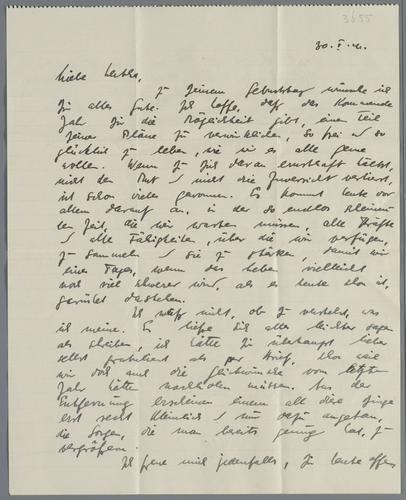 3655
30. I. 41.
Liebe Lertha,
zu Deinem Geburtstag wünsche ich
Dir alles Gute. Ich hoffe, dass das kommende
Jahr Dir die Möglichkeit gibt, einen Teil
Deiner Pläne zu verwirklichen, so frei u. so
glücklich zu leben, wie wir es alle gerne
wollen. Wenn Du Dich daran ernsthaft hältst,
nicht den Mut u. nicht die Zuversicht verlierst,
ist schon vieles gewonnen. Es kommt heute vor
allem darauf an, in der so endlos scheinen-
den Zeit, die wir warten müssen, alle Kräfte
u. alle Fähigkeiten, über die wir verfügen,
zu sammeln u. sie zu stärken, damit wir
eines Tages, wenn das Leben vielleicht
noch viel schwerer wird, als es heute schon ist,
gerüstet dastehen.
Ich weiss nicht, ob Du verstehst, was
ich meine. Es liesse sich alles leichter sagen
als schreiben, ich hätte Dir überhaupt lieber
selbst gratuliert als per Brief, schon weil
wir doch auch die Glückwünsche vom letzten
Jahr hätten nachholen müssen. Aus der
Entfernung erscheinen einem all diese Dinge
erst recht kleinlich u. nur dazu angetan,
die Sorgen, die man bereits genug hat, zu
vergrößern.
Ich freue mich jedenfalls, Dir heute offen